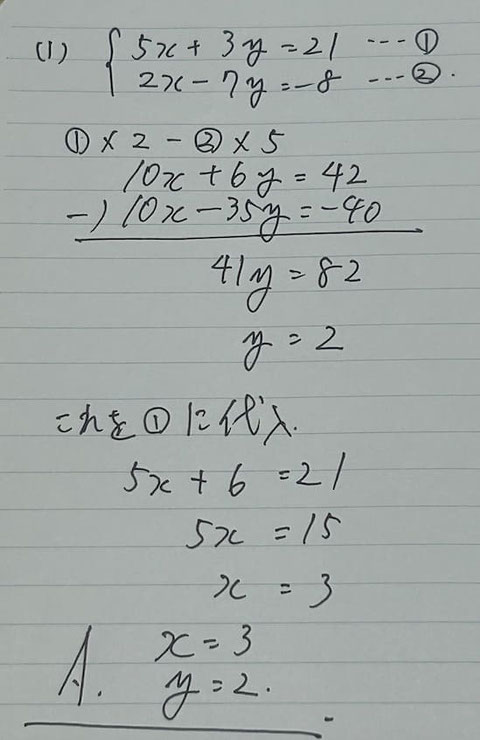 (1) { 5x + 3y = 21 ---①
2x - 7y = -8 ---②.
① × 2 - ② × 5
10x + 6y = 42
-) 10x - 35y = -40
41y = 82
y = 2
これを①に代入.
5x + 6 = 21
5x = 15
x = 3
A. x = 3
y = 2.